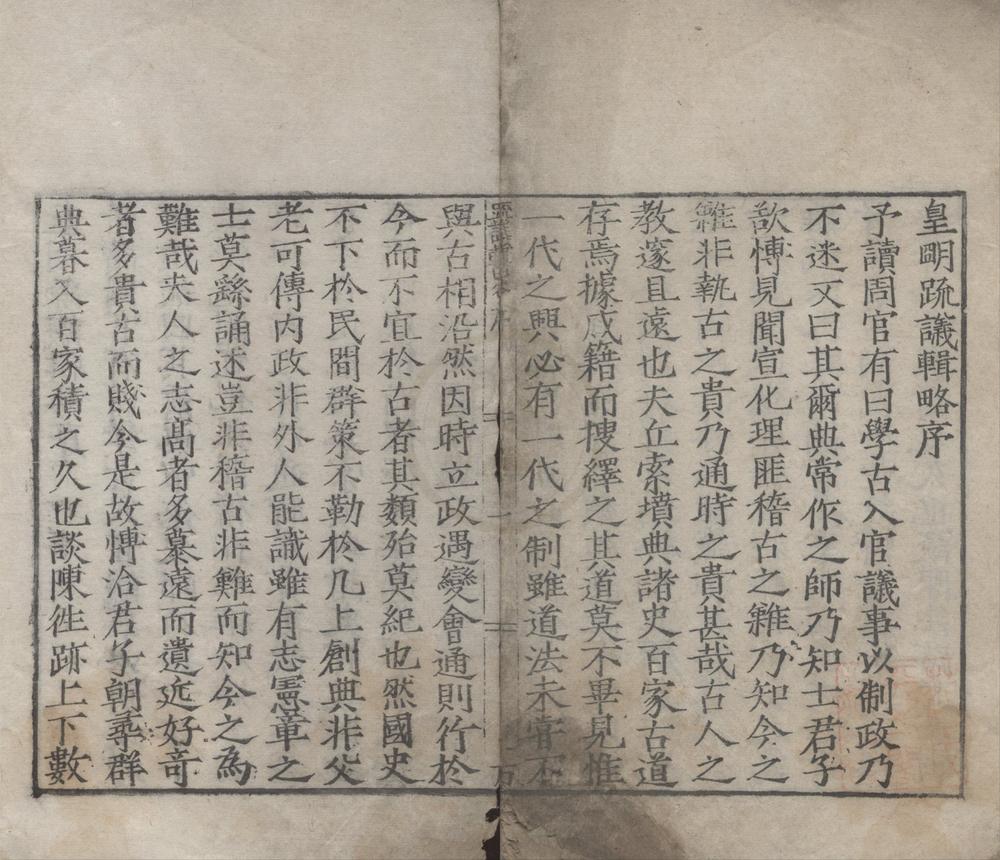 皇明疏議輯略序
予讀周官有曰學古入官議事以制政乃
不迷又曰其爾典常作之師乃知士君子
欲愽見聞宣化理匪稽古之難乃知今之
難非執古之貴乃通時之貴甚哉古人之
教邃且遠也夫丘索墳典諸史百家古道
存焉據成籍而搜繹之其道莫不畢見惟
一代之興必有一代之制雖道法未嘗不
與古相沿然因時立政遇變會通則行於
今而不宜於古者其纇殆莫紀也然國史
不下於民間群策不勒於几上創典非父
老可傳內政非外人能識雖有志憲章之
士莫繇誦述豈非稽古非難而知今之為
難哉夫人之志髙者多慕遠而遺近好奇
者多貴古而賤今是故愽洽君子朝尋群
典暮入百家積之久也談陳徃跡上下數